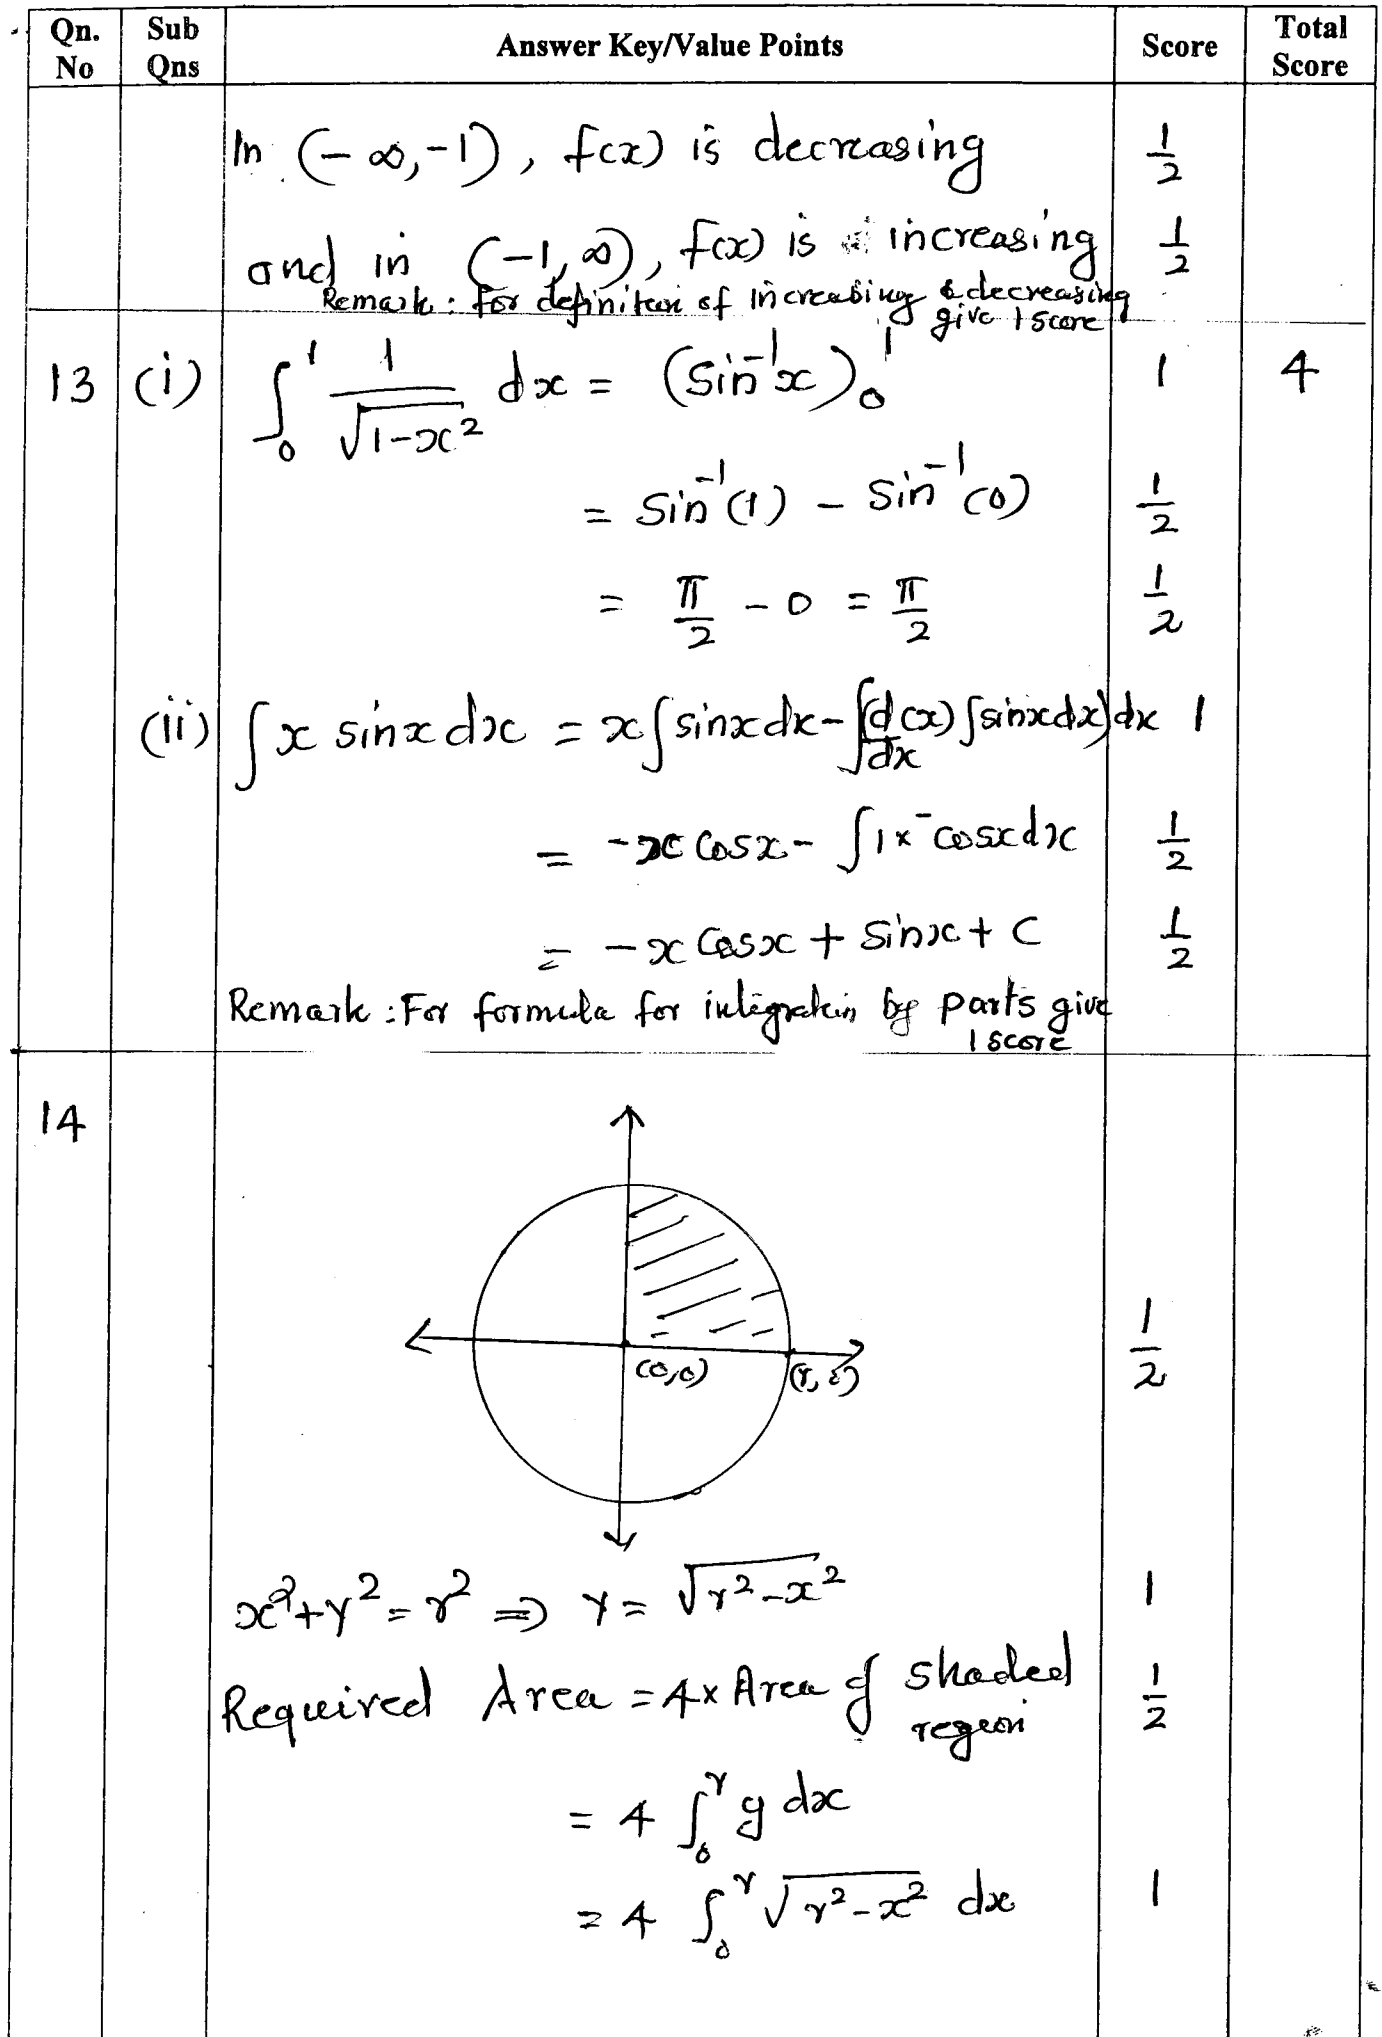 Qn. No | Sub Qns | Answer Key/Value Points | Score | Total Score
In (-∞,-1), f(x) is decreasing 1/2
and in (-1,∞), f(x) is increasing 1/2
Remark : For definition of increasing & decreasing give 1 score
13 (i) ∫₀¹ 1/√(1-x²) dx = (Sin⁻¹x)₀¹ 1 4
= Sin⁻¹(1) - Sin⁻¹(0) 1/2
= π/2 - 0 = π/2 1/2
(ii) ∫x sinx dx = x∫sinx dx - ∫(d(x)/dx ∫sinx dx)dx 1
= -x Cosx - ∫1× -cosx dx 1/2
= -x Cosx + Sinx + C 1/2
Remark : For formula for integration by parts give
1 score
14
(0,0) 1/2
x²+y²=r² ⇒ y = √r²-x² 1
Required Area = 4× Area of shaded region 1/2
= 4 ∫₀ʳ y dx
= 4 ∫₀ʳ √r²-x² dx 1